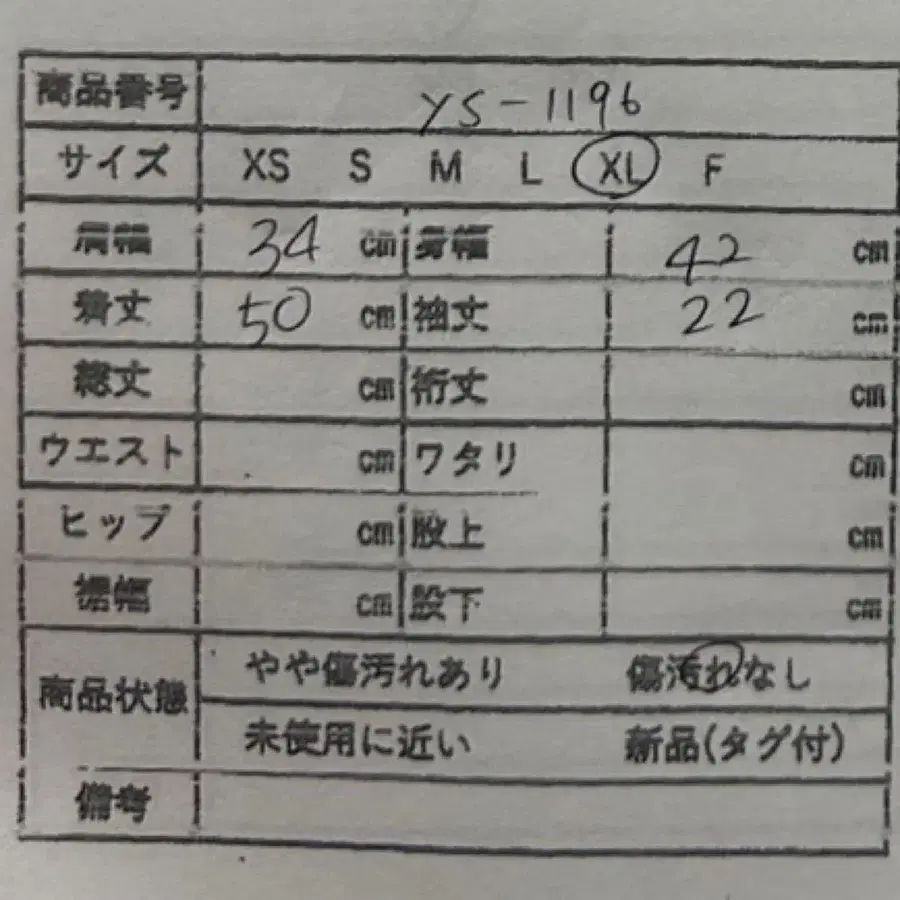 商品番号 YS-1196
サイズ XS S M L XL F
肩幅 34 cm 身幅 42 cm
着丈 50 cm 袖丈 22 cm
総丈 cm 裄丈 cm
ウエスト cm ワタリ cm
ヒップ cm 股上 cm
裾幅 cm 股下 cm
商品状態 やや傷汚れあり 傷汚れなし
未使用に近い 新品(タグ付)
備考